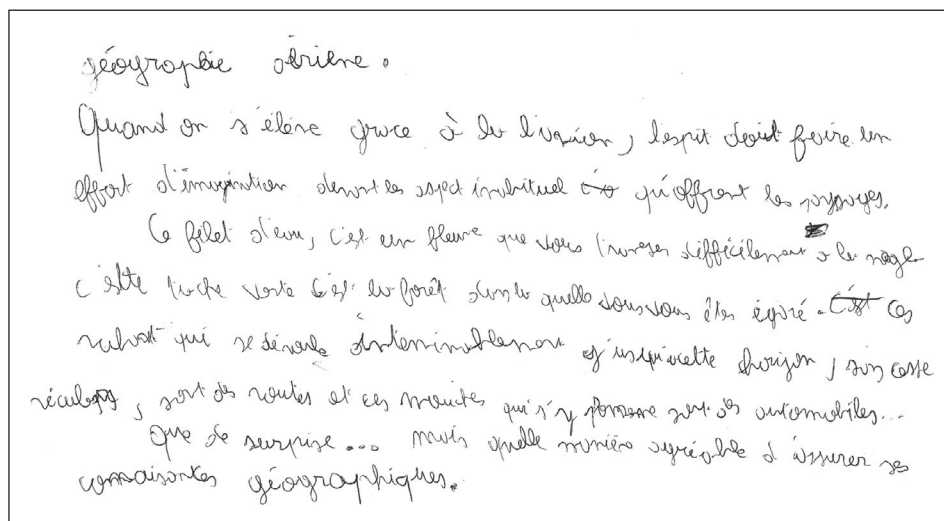 géographie aérienne.
Quand on s'élève grace à la l'avsion, l'esprit doit faire un
effort d'émagination devant les aspect inabituel qu'offrent les paysages.
Ce filet d'eau, c'est un fleuve que vous traverser difficilement a la nage
c'ette tache verte c'est la forêt dans la quelle vous vous êtes égaré. ces
ruban qui se déroule interminablement horizon, sans cesse
, sont des routes et ces qui s'y sont des automobiles...
Que de surprise... mais quelle manière agréable d'assurer ses
connaisantes géographiques.